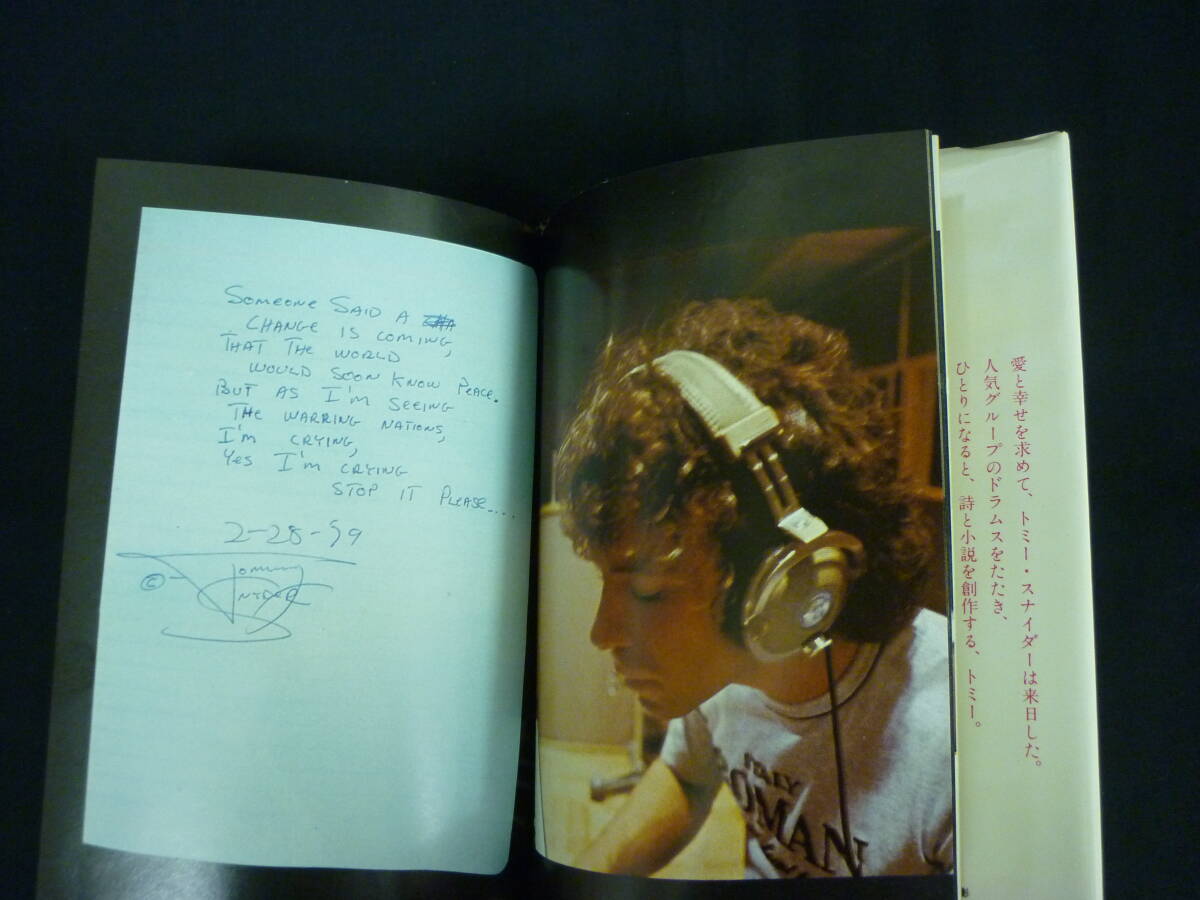 SOMEONE SAID A
CHANGE IS COMING,
THAT THE WORLD
WOULD SOON KNOW PEACE.
BUT AS I'M SEEING
THE WARRING NATIONS,
I'M CRYING,
YES I'M CRYING
STOP IT PLEASE....
2-28-79
©
TOMMY
SNYDER
ITALY
ROMAN
愛と幸せを求めて、トミー・スナイダーは来日した。
人気グループのドラムスをたたき、
ひとりになると、詩と小説を創作する、トミー。